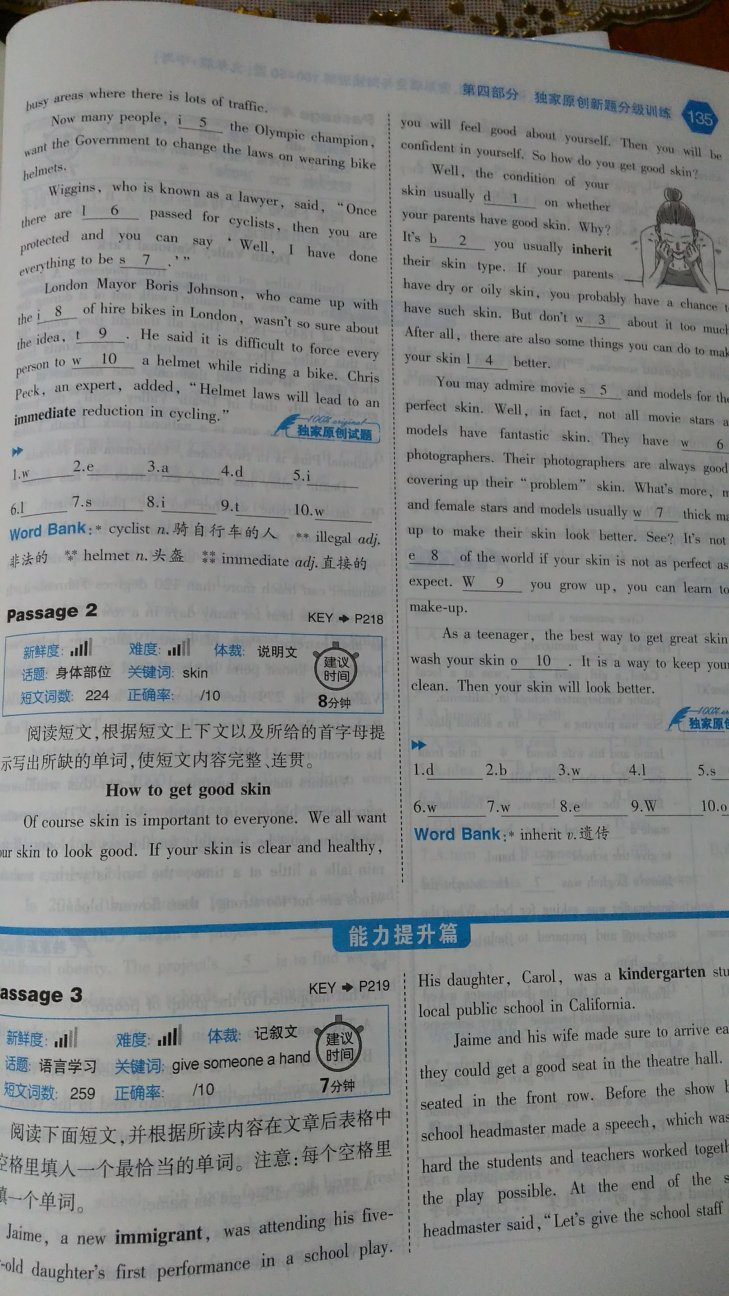 第四部分 独家原创新题分级训练 135
busy areas where there is lots of traffic.
Now many people, i 5 the Olympic champion,
want the Government to change the laws on wearing bike
helmets.
Wiggins, who is known as a lawyer, said, “Once
there are l 6 passed for cyclists, then you are
protected and you can say ‘Well, I have done
everything to be s 7 .’”
London Mayor Boris Johnson, who came up with
the i 8 of hire bikes in London, wasn't so sure about
the idea, t 9 . He said it is difficult to force every
person to w 10 a helmet while riding a bike. Chris
Peck, an expert, added, “Helmet laws will lead to an
immediate reduction in cycling.”
100% original
独家原创试题
1.w 2.e 3.a 4.d 5.i
6.l 7.s 8.i 9.t 10.w
Word Bank:* cyclist n.骑自行车的人 ** illegal adj.
非法的 *** helmet n.头盔 **** immediate adj.直接的
Passage 2 KEY P218
新鲜度: 难度: 体裁: 说明文
话题: 身体部位 关键词: skin
短文词数: 224 正确率: /10
建议
时间
8分钟
阅读短文,根据短文上下文以及所给的首字母提
示写出所缺的单词,使短文内容完整、连贯。
How to get good skin
Of course skin is important to everyone. We all want
our skin to look good. If your skin is clear and healthy,
you will feel good about yourself. Then you will be
confident in yourself. So how do you get good skin?
Well, the condition of your
skin usually d 1 on whether
your parents have good skin. Why?
It's b 2 you usually inherit
their skin type. If your parents
have dry or oily skin, you probably have a chance t
have such skin. But don't w 3 about it too much
After all, there are also some things you can do to mak
your skin l 4 better.
You may admire movie s 5 and models for the
perfect skin. Well, in fact, not all movie stars a
models have fantastic skin. They have w 6
photographers. Their photographers are always good
covering up their “problem” skin. What's more, m
and female stars and models usually w 7 thick ma
up to make their skin look better. See? It's not
e 8 of the world if your skin is not as perfect as
expect. W 9 you grow up, you can learn to
make-up.
As a teenager, the best way to get great skin
wash your skin o 10 . It is a way to keep your
clean. Then your skin will look better.
100% or
独家原
1.d 2.b 3.w 4.l 5.s
6.w 7.w 8.e 9.W 10.o
Word Bank:* inherit v.遗传
能力提升篇
assage 3 KEY P219
新鲜度: 难度: 体裁: 记叙文
话题: 语言学习 关键词: give someone a hand
短文词数: 259 正确率: /10
建议
时间
7分钟
阅读下面短文,并根据所读内容在文章后表格中
空格里填入一个最恰当的单词。注意:每个空格里
填一个单词。
Jaime, a new immigrant, was attending his five-
-old daughter's first performance in a school play.
His daughter, Carol, was a kindergarten stu
local public school in California.
Jaime and his wife made sure to arrive ea
they could get a good seat in the theatre hall.
seated in the front row. Before the show b
school headmaster made a speech, which was
hard the students and teachers worked togeth
the play possible. At the end of the s
headmaster said, “Let's give the school staff